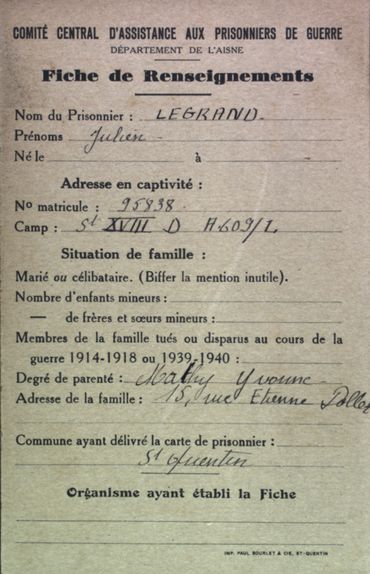 COMITÉ CENTRAL D'ASSISTANCE AUX PRISONNIERS DE GUERRE
DÉPARTEMENT DE L'AISNE
Fiche de Renseignements
Nom du Prisonnier : LEGRAND
Prénoms Julien
Né le à
Adresse en captivité :
No matricule : 95838
Camp : St XVIII D A609/L
Situation de famille :
Marié ou célibataire. (Biffer la mention inutile).
Nombre d'enfants mineurs :
— de frères et sœurs mineurs :
Membres de la famille tués ou disparus au cours de la
guerre 1914-1918 ou 1939-1940 :
Degré de parenté : Yvonne
Adresse de la famille : 15, rue Etienne
Commune ayant délivré la carte de prisonnier :
St Quentin
Organisme ayant établi la Fiche
IMP. PAUL BOURLET & CIE, ST-QUENTIN